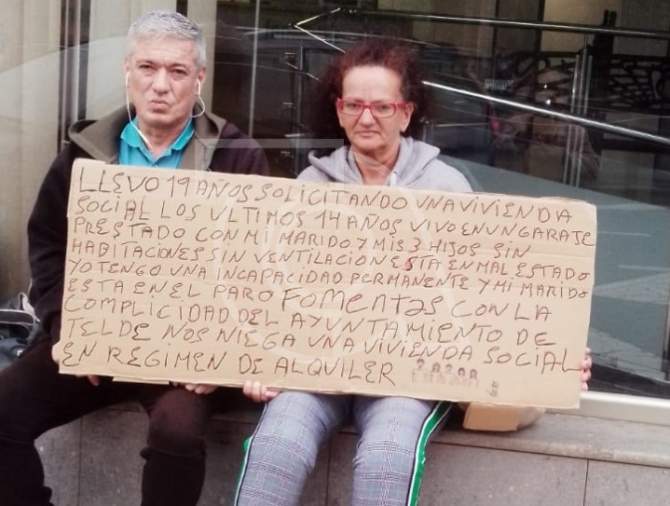 LLEVO 19 AÑOS SOLICITANDO UNA VIVIENDA
SOCIAL LOS ULTIMOS 14 AÑOS VIVO EN UN GARAJE
PRESTADO CON MI MARIDO Y MIS 3 HIJOS SIN
HABITACIONES SIN VENTILACION ESTA EN MAL ESTADO
YO TENGO UNA INCAPACIDAD PERMANENTE Y MI MARIDO
ESTA EN EL PARO FOMENTAS CON LA
COMPLICIDAD DEL AYUNTAMIENTO DE
TELDE NOS NIEGA UNA VIVIENDA SOCIAL
EN REGIMEN DE ALQUILER